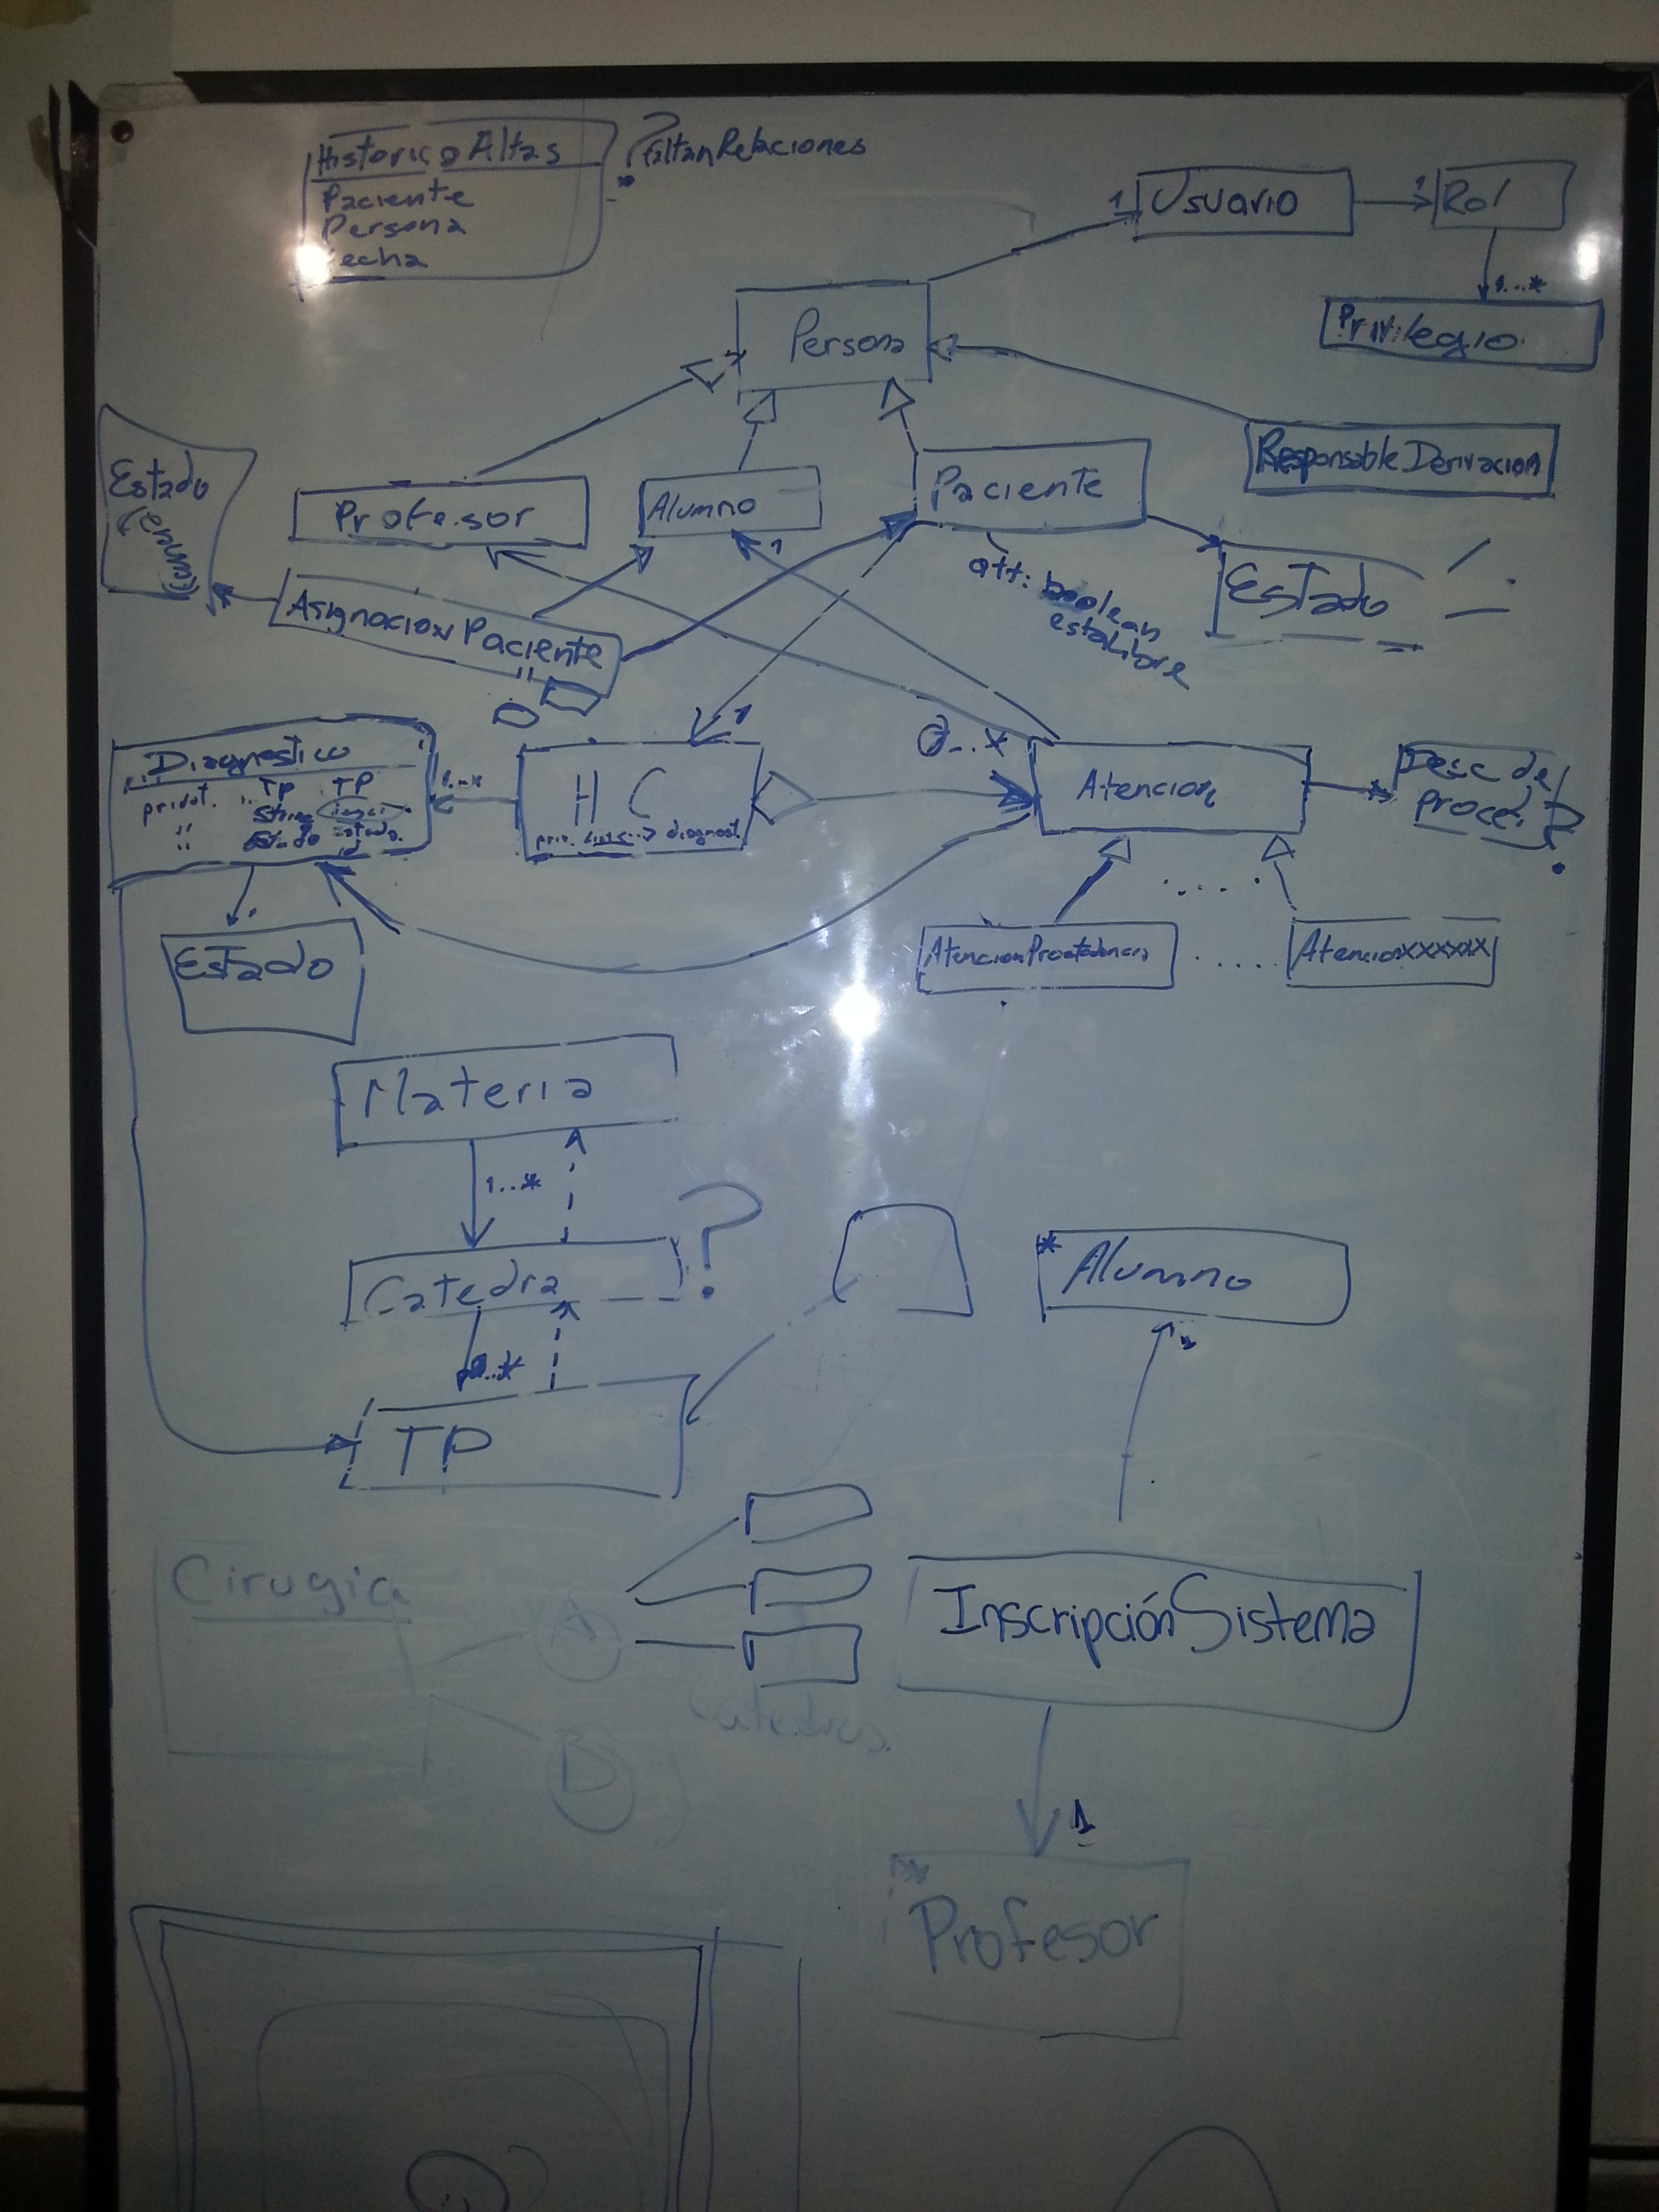 HistoricoAltas
Paciente
Persona
Fecha
? faltanRelaciones
1 Usuario
1 Rol
1...*
Privilegio
Persona
ResponsableDerivacion
Estado
(enum)
Profesor
Alumno
1
Paciente
att: boolean
estaLibre
Estado
AsignacionPaciente
Diagnostico
TP TP
String
Estado
1...*
HC
1
0...*
Atencion
Desc del
proced?
Estado
.....
.....
Atencionxxxxxx
Materia
1...*
Catedra
?
...*
TP
* Alumno
Cirugia
A
B
Catedras
InscripciónSistema
1
Profesor